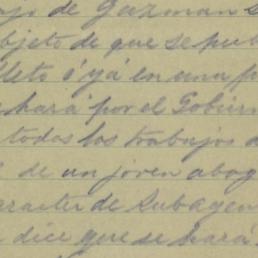 ajo de Guzman S
bjeto de que se pub
lleto ó yá en una p
hará por el Gobier
todos los trabajos d
de un joven abog
aracter de Subagen
dice que se hará